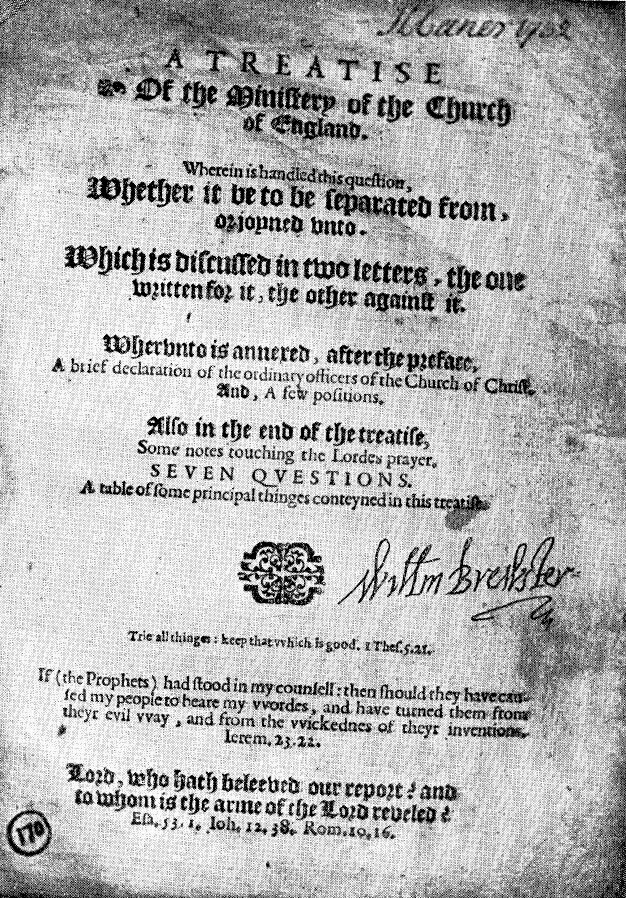 1732
A TREATISE
Of the Ministery of the Church
of England.
Wherein is handled this question,
Whether it be to be separated from,
or joyned vnto.
Which is discussed in two letters, the one
written for it, the other against it.
Whervnto is annexed, after the preface,
A brief declaration of the ordinary officers of the Church of Christ.
And, A few positions.
Also in the end of the treatise,
Some notes touching the Lordes prayer.
SEVEN QVESTIONS.
A table of some principal thinges conteyned in this treatise.
Willm Brewster
Trie all thinges: keep that vvhich is good. 1 Thes. 5. 21.
If (the Prophets) had stood in my counsell: then should they have cau-
sed my people to heare my vvordes, and have turned them from
theyr evil vvay, and from the vvickednes of theyr inventions.
Ierem. 23. 22.
Lord, who hath beleeved our report? and
to whom is the arme of the Lord reveled?
Esa. 53. 1. Joh. 12. 38. Rom. 10. 16.
170